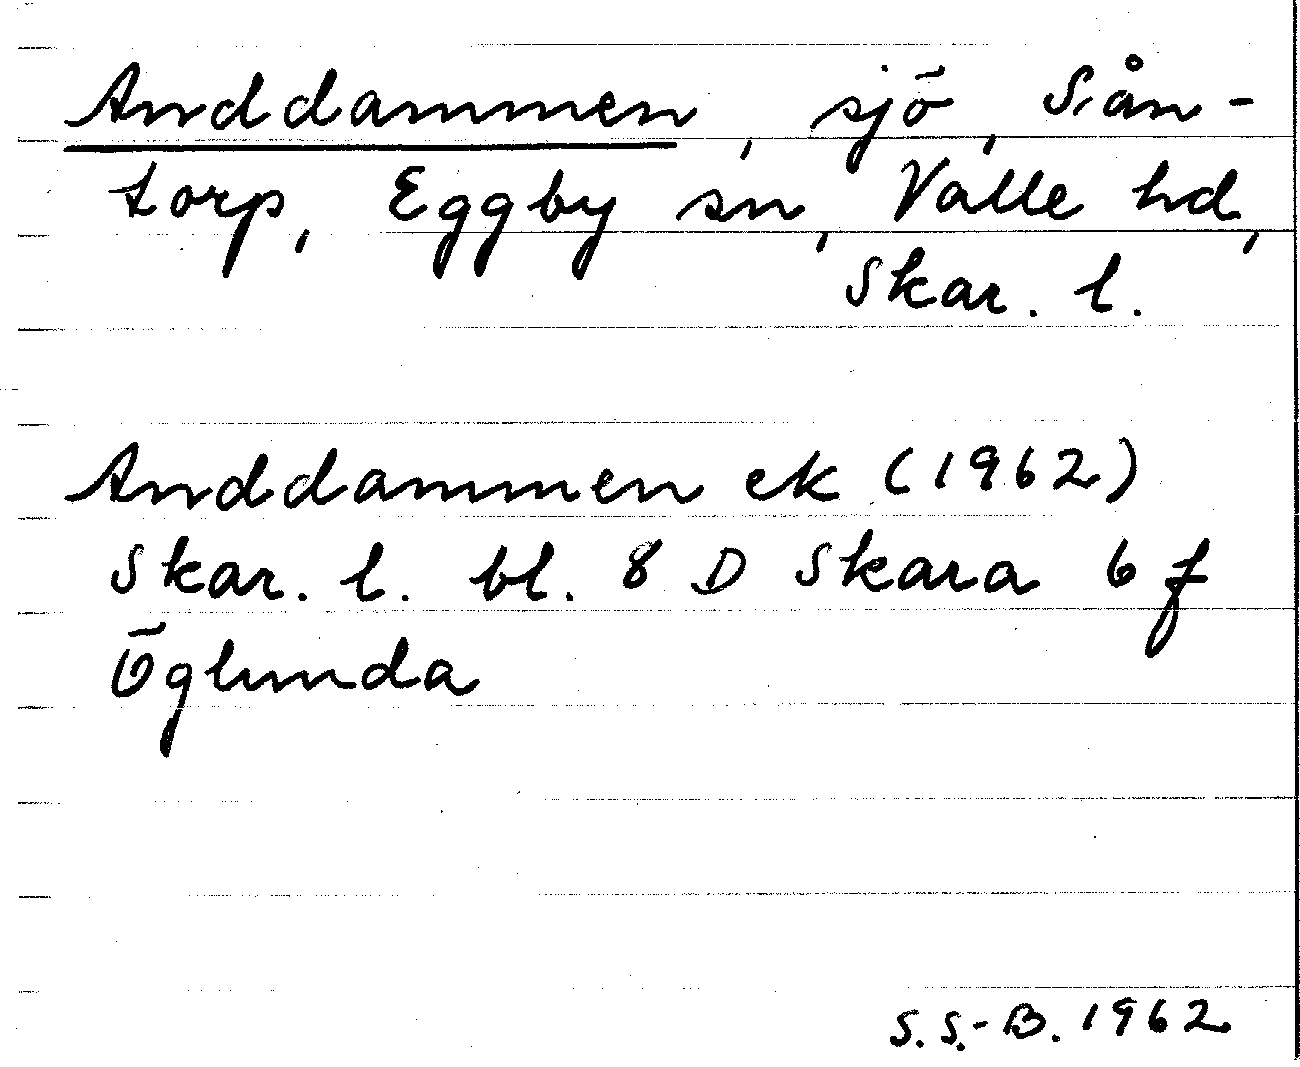 Anddammen, sjö, Sån-
torp, Eggby sn, Valle hd,
Skar. l.
Anddammen ek (1962)
Skar. l. bl. 8 D Skara 6 f
Öglunda
S. S.-B. 1962